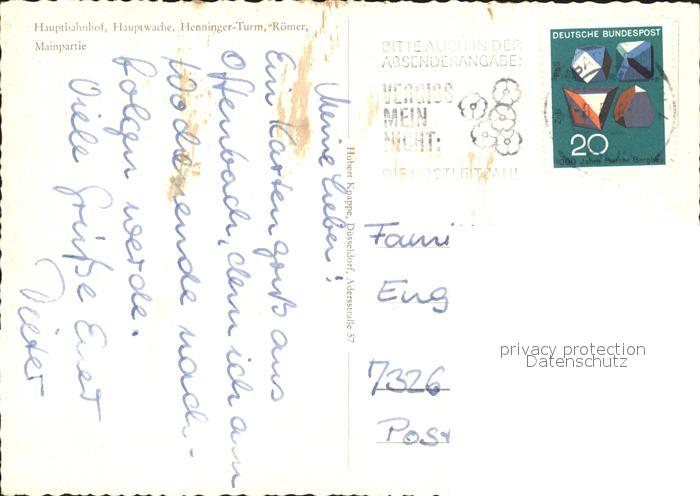 Hauptbahnhof, Hauptwache, Henninger-Turm, Römer,
Mainpartie
BITTE AUCH IN DER
ABSENDERANGABE:
VERGISS
MEIN
NICHT:
DIE POSTLEITZAHL
DEUTSCHE BUNDESPOST
20
1000 Jahre Harzer Bergbau
Meine Lieben!
Ein Kartengruß aus
Offenbach, dem ich am
Wochenende nach-
folgen werde.
Viele Grüße Euer
Dieter
Hubert Knippe, Düsseldorf, Adersstraße 57
Fami
Eug
7326
Post
privacy protection
Datenschutz